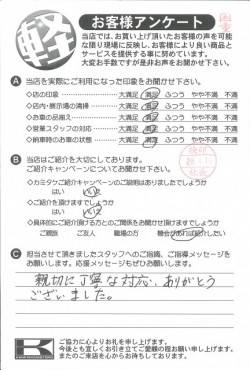 軽
お客様アンケート
当店では、お買い上げ頂いたお客様の声を可能
な限り現場に反映し、お客様により良い商品と
サービスを提供する事に努めています。
大変お手数ですが是非お声をお聞かせ下さい。
A 当店を実際にご利用になった印象をお聞かせ下さい。
◇店の印象 大満足 満足 ふつう やや不満 不満
◇店内・展示場の清掃 大満足 満足 ふつう やや不満 不満
◇お車の品揃え 大満足 満足 ふつう やや不満 不満
◇営業スタッフの対応 大満足 満足 ふつう やや不満 不満
◇納車時のお車の状態 大満足 満足 ふつう やや不満 不満
B 当店はご紹介を大切にしております。
ご紹介キャンペーンについてお聞かせ下さい。
◇カミタケご紹介キャンペーンのご説明はありましたでしょうか
はい いいえ
◇ご紹介を頂けますでしょうか
はい いいえ
◇具体的にご紹介頂ける方とのご関係をお聞かせ頂けますでしょうか
ご親戚 ご友人 職場の方 機会があれば紹介したい
C 担当させて頂きましたスタッフへのご指摘、ご指導メッセージを
お願いします。応援メッセージもぜひお願いします。
親切に丁寧な対応、ありがとう
ございました。
K
ご協力に心よりお礼を申し上げます。
今後とも宜しくお引き立てご愛顧の程お願い申し上げます。
またのご来店を心からお待ちしております。